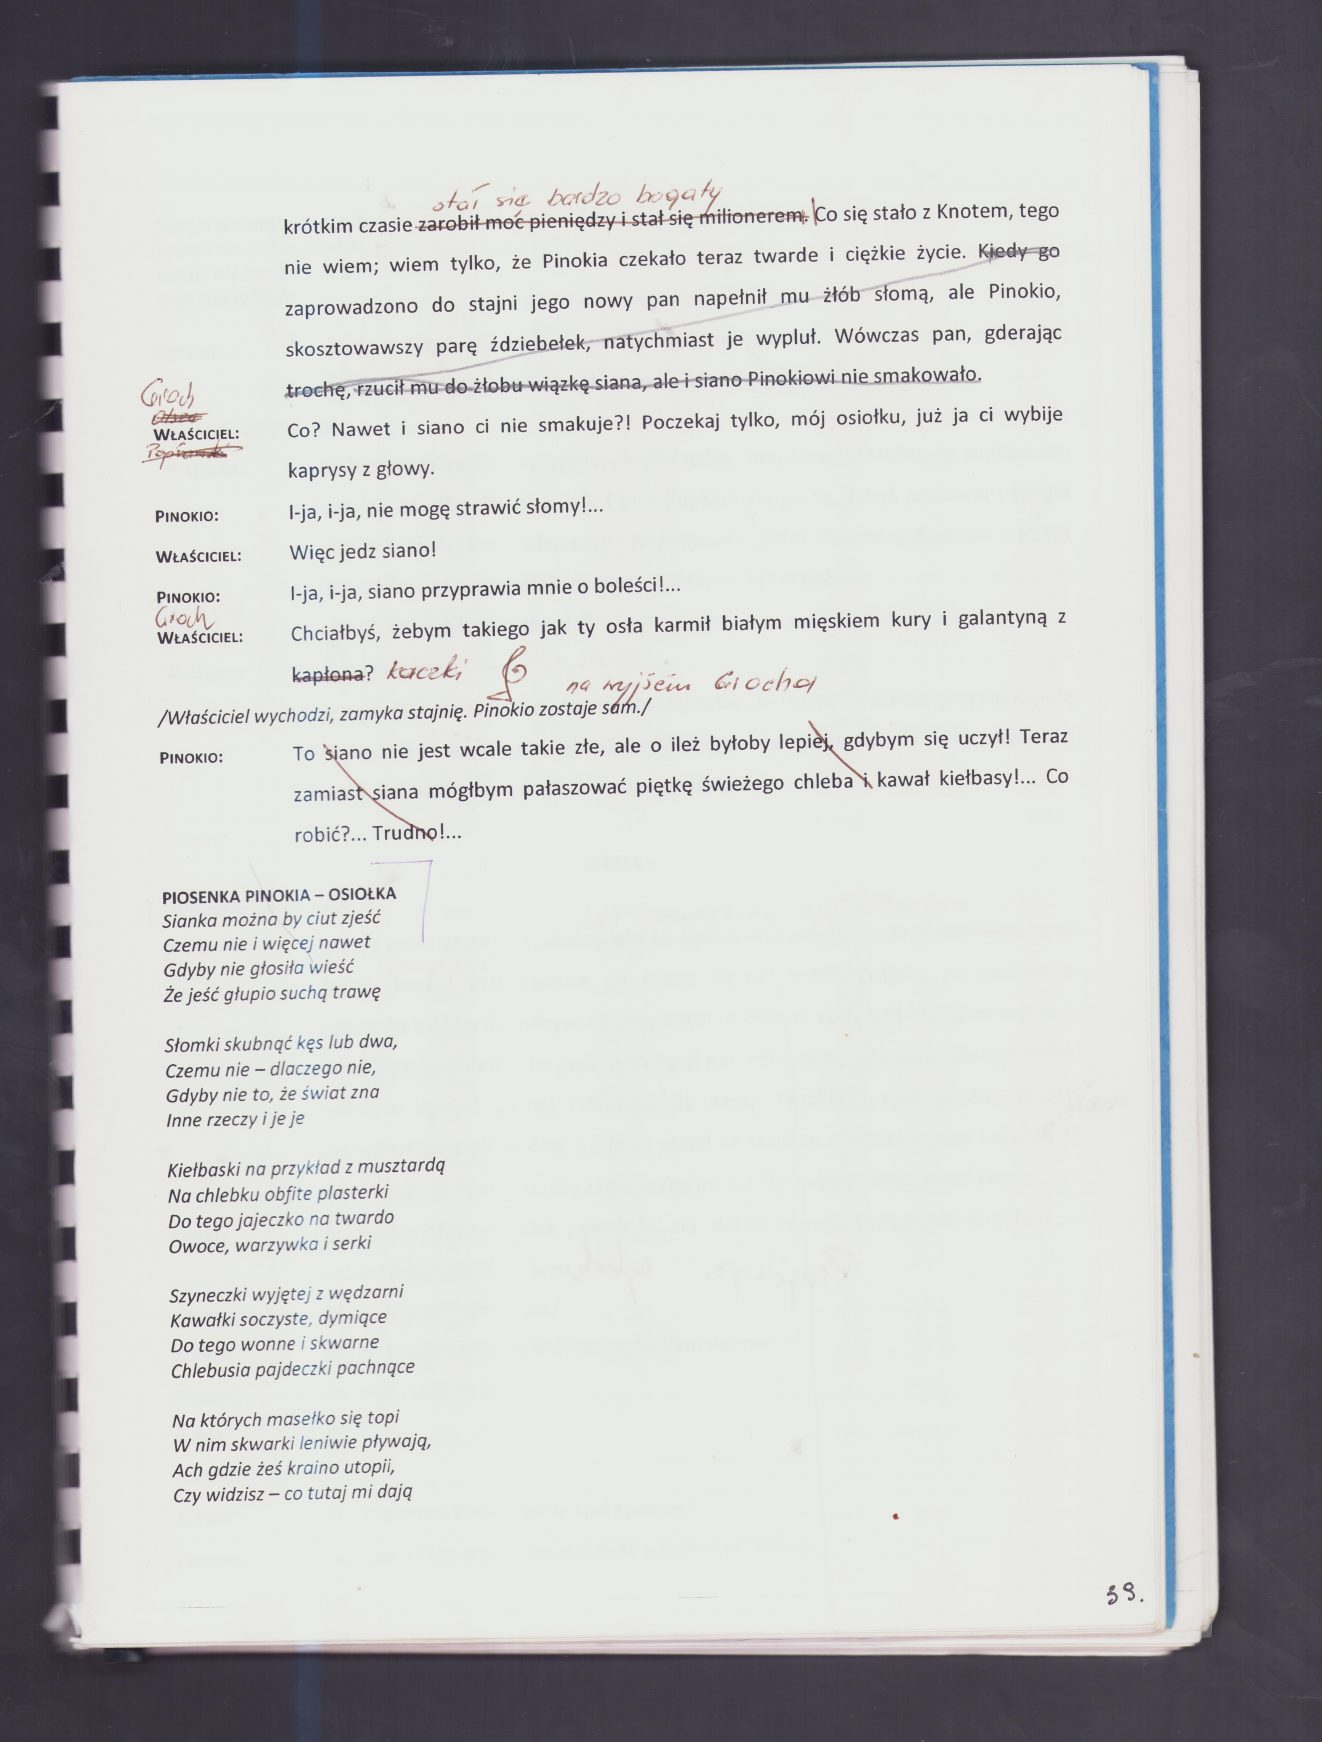 stał się bardzo bogaty
krótkim czasie zarobił moc pieniędzy i stał się milionerem. Co się stało z Knotem, tego
nie wiem; wiem tylko, że Pinokia czekało teraz twarde i ciężkie życie. Kiedy go
zaprowadzono do stajni jego nowy pan napełnił mu żłób słomą, ale Pinokio,
skosztowawszy parę ździebełek, natychmiast je wypluł. Wówczas pan, gderając
trochę, rzucił mu do żłobu wiązkę siana, ale i siano Pinokiowi nie smakowało.
Groch
WŁAŚCICIEL: Co? Nawet i siano ci nie smakuje?! Poczekaj tylko, mój osiołku, już ja ci wybije
kaprysy z głowy.
PINOKIO: I-ja, i-ja, nie mogę strawić słomy!...
WŁAŚCICIEL: Więc jedz siano!
PINOKIO: I-ja, i-ja, siano przyprawia mnie o boleści!...
Groch
WŁAŚCICIEL: Chciałbyś, żebym takiego jak ty osła karmił białym mięskiem kury i galantyną z
kapłona? kaczki na wyjściu Grocha
/Właściciel wychodzi, zamyka stajnię. Pinokio zostaje sam./
PINOKIO: To siano nie jest wcale takie złe, ale o ileż byłoby lepiej, gdybym się uczył! Teraz
zamiast siana mógłbym pałaszować piętkę świeżego chleba i kawał kiełbasy!... Co
robić?... Trudno!...
PIOSENKA PINOKIA – OSIOŁKA
Sianka można by ciut zjeść
Czemu nie i więcej nawet
Gdyby nie głosiła wieść
Że jeść głupio suchą trawę
Słomki skubnąć kęs lub dwa,
Czemu nie – dlaczego nie,
Gdyby nie to, że świat zna
Inne rzeczy i je je
Kiełbaski na przykład z musztardą
Na chlebku obfite plasterki
Do tego jajeczko na twardo
Owoce, warzywka i serki
Szyneczki wyjętej z wędzarni
Kawałki soczyste, dymiące
Do tego wonne i skwarne
Chlebusia pajdeczki pachnące
Na których masełko się topi
W nim skwarki leniwie pływają,
Ach gdzie żeś kraino utopii,
Czy widzisz – co tutaj mi dają
39.